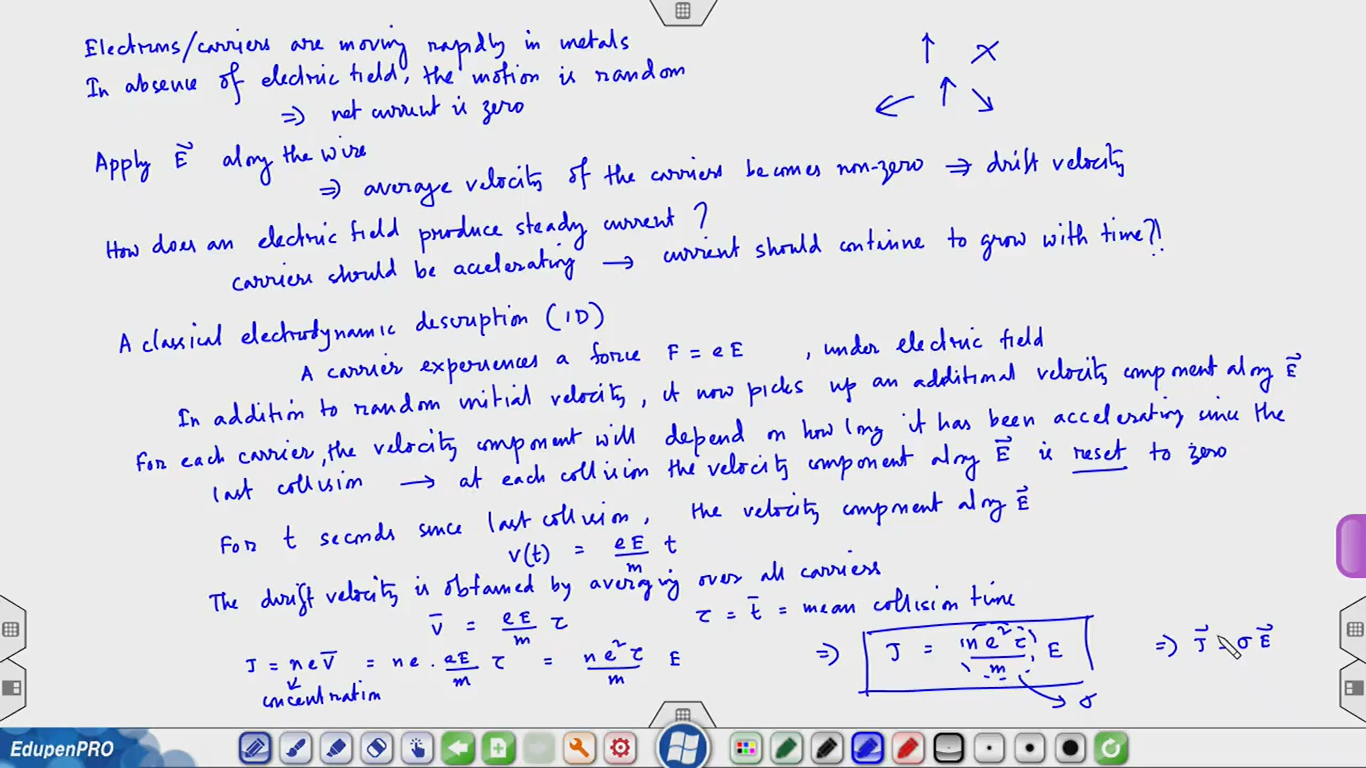 Electrons/carriers are moving rapidly in metals
In absence of electric field, the motion is random
⇒ net current is zero
Apply E⃗ along the wire
⇒ average velocity of the carriers becomes non-zero ⇒ drift velocity
How does an electric field produce steady current ?
carriers should be accelerating → current should continue to grow with time?!
A classical electrodynamic description (1D)
A carrier experiences a force F = eE , under electric field
In addition to random initial velocity, it now picks up an additional velocity component along E⃗
For each carrier, the velocity component will depend on how long it has been accelerating since the
last collision → at each collision the velocity component along E⃗ is reset to zero
For t seconds since last collision, the velocity component along E⃗
v(t) = eE/m t
The drift velocity is obtained by averaging over all carriers
v̄ = eE/m τ τ = t̄ = mean collision time
J = nev̄ = ne · eE/m τ = ne²τ/m E ⇒ J = ne²τ/m E ⇒ J⃗ = σE⃗
concentration σ
EdupenPRO